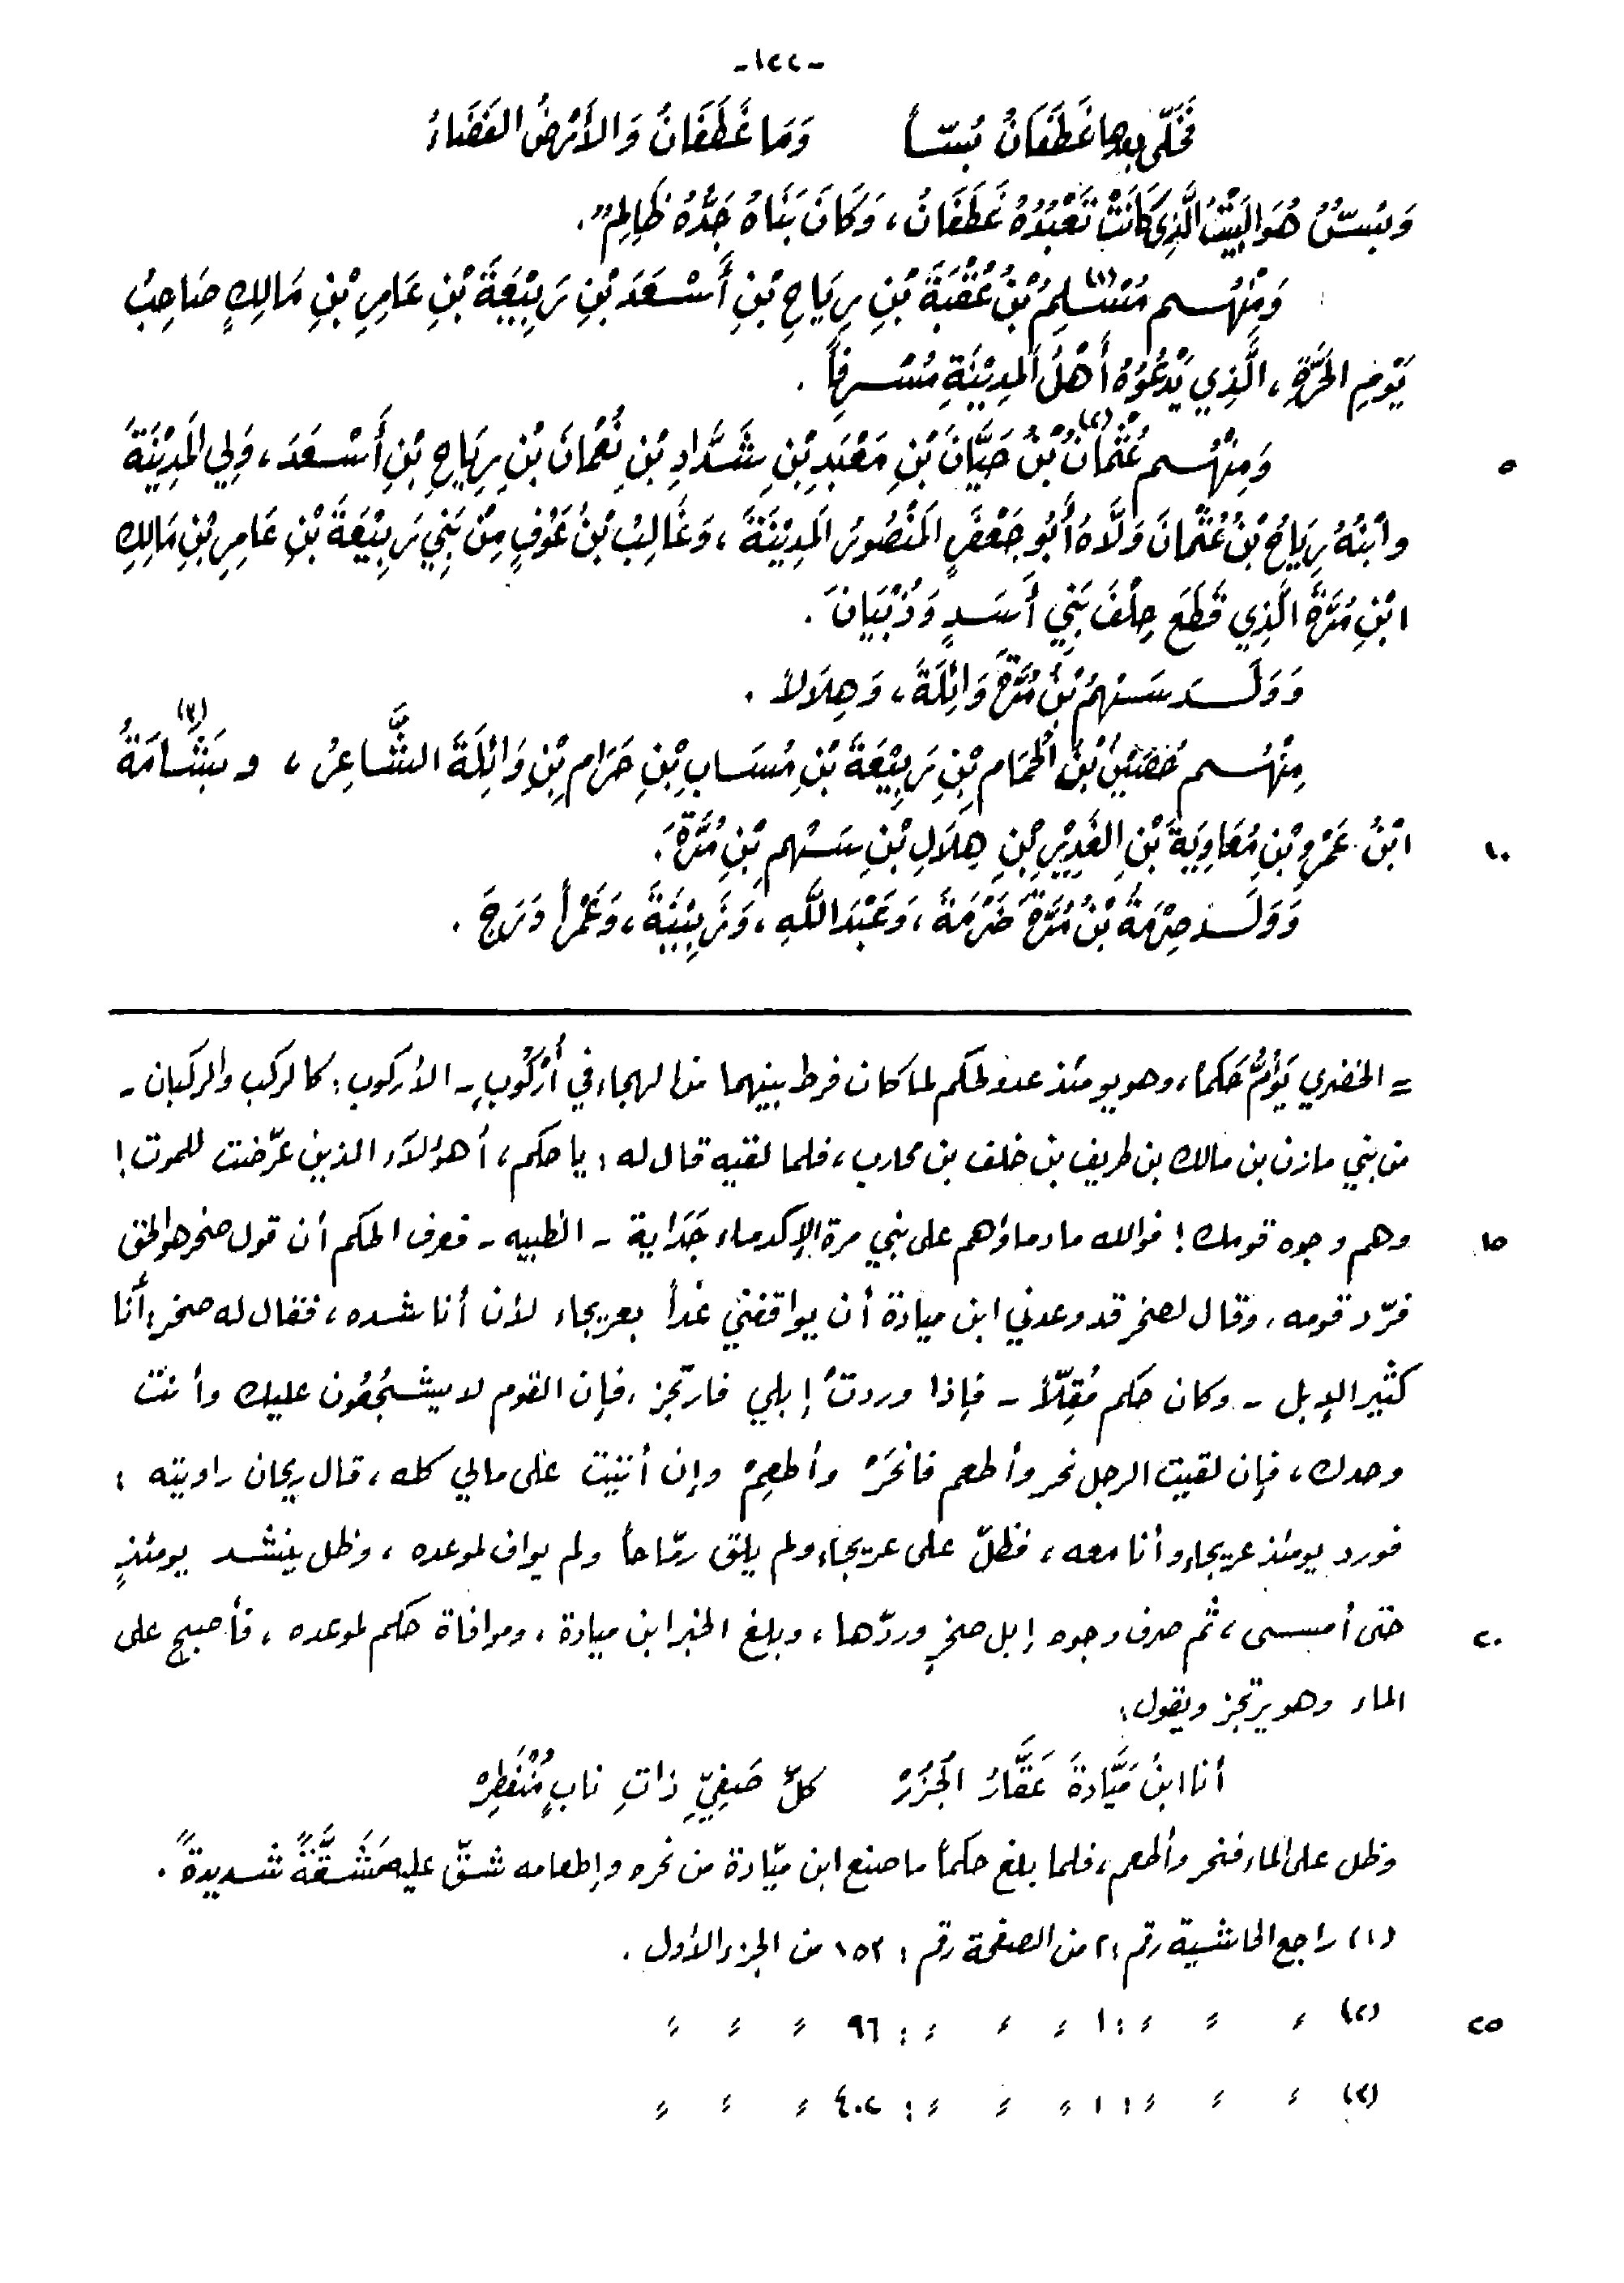 -١٢٢-
فَخَلَّى بعدها غَطَفَانُ بُسّاً وَمَا غَطَفَانُ وَالأَرْضُ الفَضَاءُ
وَبُسٌّ هُوَ البَيْتُ الَّذِي كَانَتْ تَعْبُدُهُ غَطَفَانُ، وَكَانَ بَنَاهُ جَدُّهُ ظَالِمٌ".
وَمِنْهُم مُسْلِمُ(١) بْنُ عُقْبَةَ بْنِ رِيَاحِ بْنِ أَسْعَدَ بْنِ رَبِيْعَةَ بْنِ عَامِرِ بْنِ مَالِكٍ صَاحِبُ
يَوْمِ الحَرَّةِ، الَّذِي يَدْعُوْهُ أَهْلُ المَدِيْنَةِ مُسْرِفاً.
وَمِنْهُم عُثْمَانُ(٢) بْنُ حَيَّانَ بْنِ مَعْبَدِ بْنِ شَدَّادِ بْنِ نُعْمَانَ بْنِ رِيَاحِ بْنِ أَسْعَدَ، وَلِي المَدِيْنَةَ ٥
وابْنُهُ رِيَاحُ بْنُ عُثْمَانَ وَلَّاهُ أَبُو جَعْفَرٍ المَنْصُورُ المَدِيْنَةَ، وَغَالِبُ بْنُ عَوْفٍ مِنْ بَنِي رَبِيْعَةَ بْنِ عَامِرِ بْنِ مَالِكِ
ابْنِ مُرَّةَ الَّذِي قَطَعَ حِلْفَ بَنِي أَسَدٍ وَذُبْيَانَ.
وَوَلَدَ سَهْمُ بْنُ مُرَّةَ وَائِلَةَ، وَهِلَالاً.
مِنْهُم حُصَيْنُ بْنُ الحُمَامِ بْنِ رَبِيْعَةَ بْنِ مُسَابِ بْنِ حَرَامِ بْنِ وَائِلَةَ الشَّاعِرُ، وبَشَامَةُ(٣)
ابْنُ عَمْرِو بْنِ مُعَاوِيَةَ بْنِ الغَدِيْرِ بْنِ هِلَالِ بْنِ سَهْمِ بْنِ مُرَّةَ. ١٠
وَوَلَدَ صِرْمَةُ بْنُ مُرَّةَ ضَرْمَةَ، وَعَبْدَ اللَّهِ، وَزَبِيْنَةَ، وَعَمْراً دَرَجَ.
= الخضري يَؤُمُّ حَكَماً، وهو يومئذ عدو لحكم لما كان فرط بينهما من الهجاء في أُرْكُوبٍ - الأركوب: كالركب والركبان -
من بني مازن بن مالك بن طريف بن خلف بن محارب، فلما لقيه قال له: يا حكم، أهؤلاء الذين عرّضت للموت!
وهم وجوه قومك! فوالله ما دماؤهم على بني مرة إلا كدماء جَدَاية - الظبيه - فعرف الحكم أن قول صخر هو الحق ١٥
فردّ قومه، وقال لصخر قد وعدني ابن ميادة أن يواقفني غداً بعريجاء لأن أناشده، فقال له صخر: أنا
كثير الإبل - وكان حكم مُقِلّاً - فإذا وردتْ إبلي فارتجز، فإن القوم لا يشجُعُون عليك وأنت
وحدك، فإن لقيت الرجل نحر وأطعم فانْحَرْ وأطعِمْ وإن أتيت على مالي كله، قال ريحان راويته:
فورد يومئذ عريجاء وأنا معه، فظلّ على عريجاء ولم يلق رمّاحاً ولم يواف لموعده، وظل ينشد يومئذٍ
حتى أمسى، ثم صرف وجوه إبل صخرٍ وردّها، وبلغ الخبر ابن ميادة، وموافاة حكم لموعده، فأصبح على ٢٠
الماء وهو يرتجز ويقول:
أنا ابنُ مَيَّادةَ عَقَّارُ الجُزُرْ كلِّ صَفِيٍّ ذاتِ نابٍ مُنْفَطِرْ
وظل على الماء فنحر وأطعم، فلما بلغ حكماً ما صنع ابن ميّادة من نحره وإطعامه شقّ عليه مَشَقَّةً شديدةً.
(١) راجع الحاشية رقم: ٢ من الصفحة رقم: ١٥٣ من الجزء الأول.
(٢) " " ": ١ " " ": ٩٦ " " " ٢٥
(٣) " " ": ١ " " ": ٤٠٢ " " "